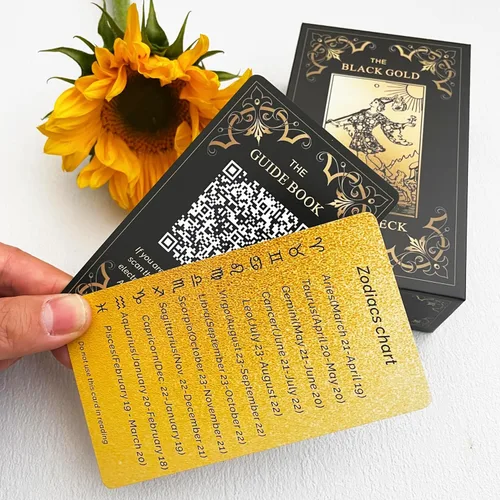 THE
BLACK GOLD
DECK
THE
GUIDE BOOK
If you
scan th
elect
Zodiacs chart
♈ Aries(March 21-April 19)
♉ Taurus(April 20-May 20)
♊ Gemini(May 21-June 20)
♋ Cancer(June 21-July 22)
♌ Leo(July 23-August 22)
♍ Virgo(August 23-September 22)
♎ Libra(September 23-October 22)
♏ Scorpio(October 23-November 21)
♐ Sagittarius(Nov. 22-December 21)
♑ Capricorn(Dec. 22-January 19)
♒ Aquarius(January 20-February 18)
♓ Pisces(February 19 - March 20)
Do not use this card in reading